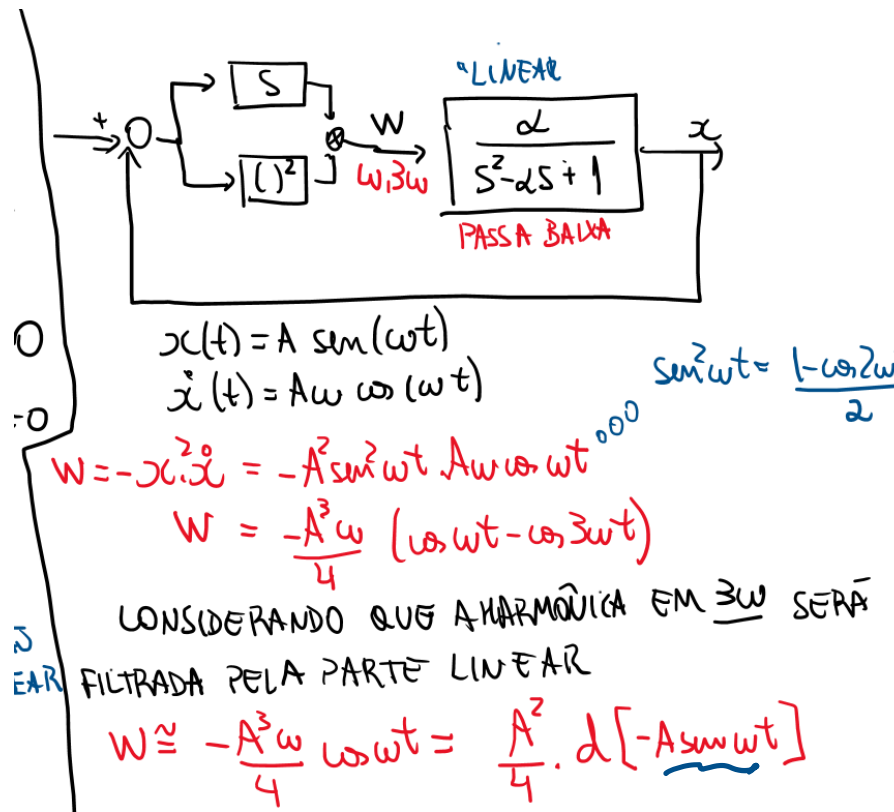 "LINEAR
S
+
W
α / (S² - αS + 1)
x
( )²
ω,3ω
PASSA BAIXA
0
x(t) = A sen(ωt)
ẋ(t) = Aω cos(ωt)
sen²ωt = (1-cos2ω / 2
=0
W = -x².ẋ = -A²sen²ωt . Aω cos ωt
W = -A³ω/4 (cos ωt - cos 3ωt)
CONSIDERANDO QUE A HARMÔNICA EM 3ω SERÁ
EAR FILTRADA PELA PARTE LINEAR
W ≅ -A³ω/4 cos ωt = A²/4 . d[-A sen ωt]